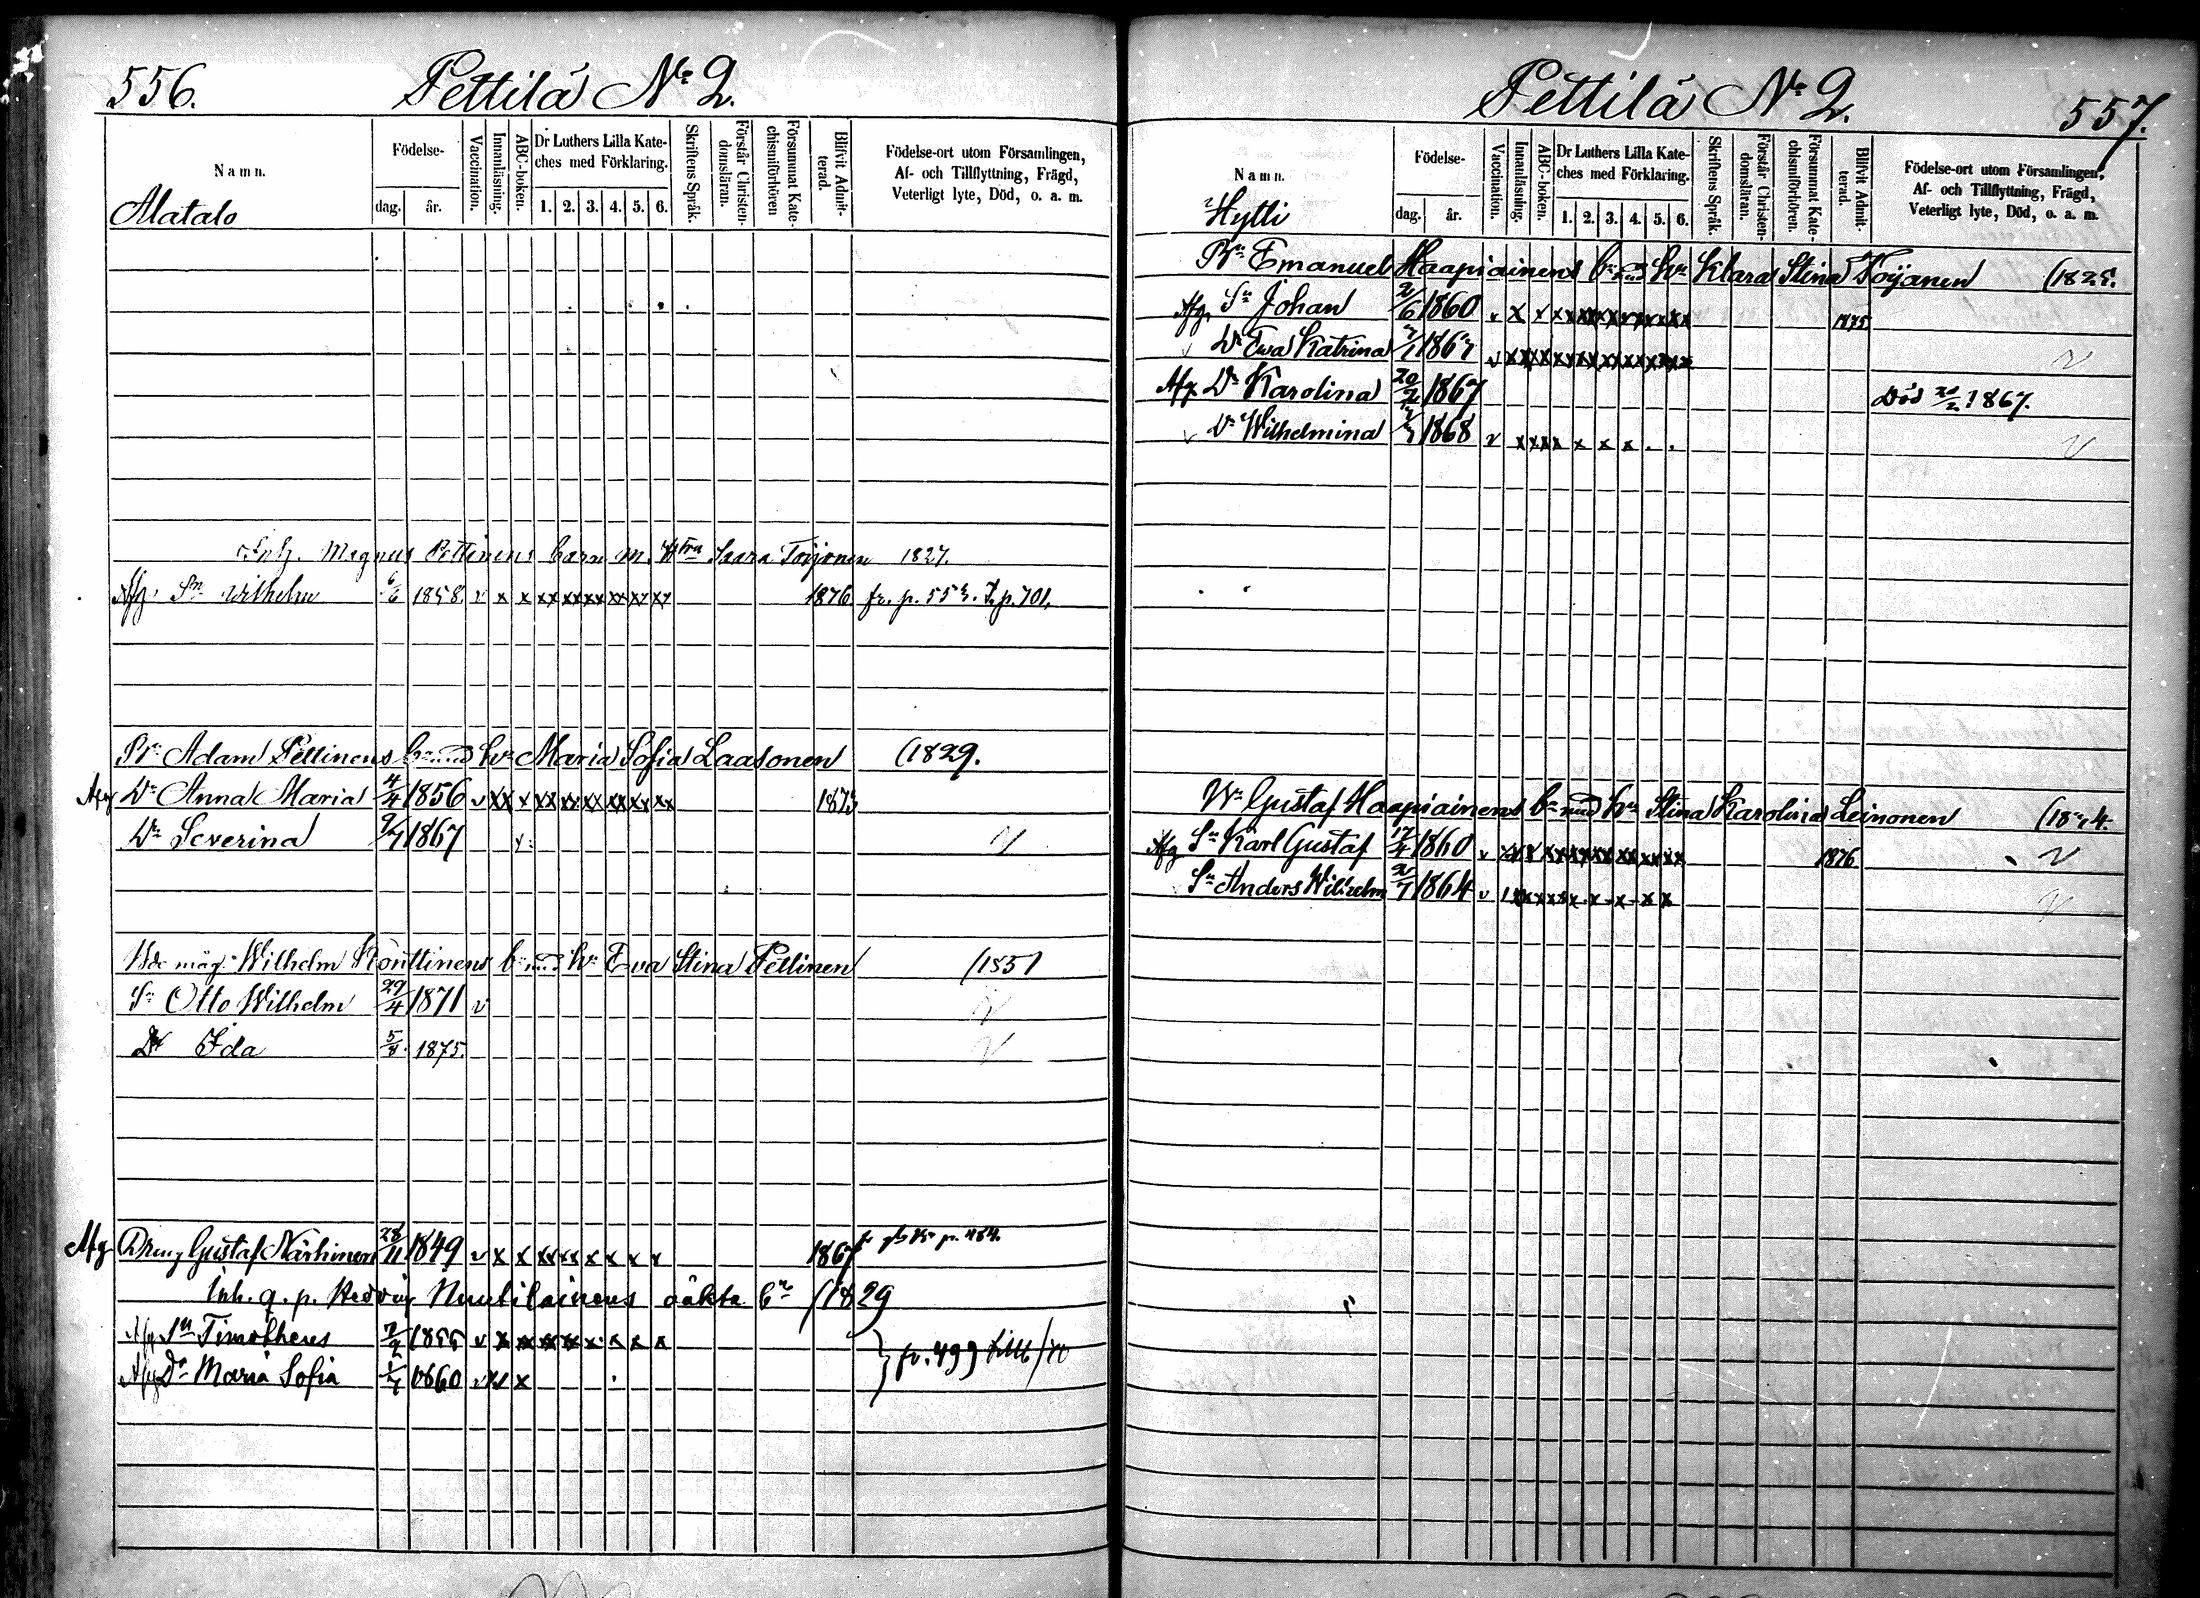 556. Pettilä No 2.
Namn.
Födelse-
dag. år.
Vaccination.
Innanläsning.
ABC-boken.
Dr Luthers Lilla Kate-
ches med Förklaring.
1. 2. 3. 4. 5. 6.
Skriftens Språk.
Förstår Christen-
domsläran.
Försummat Kate-
chismiförhören
Blifvit Admit-
terad.
Födelse-ort utom Församlingen,
Af- och Tillflyttning, Frägd,
Veterligt lyte, Död, o. a. m.
Alatalo
Inh. Magnus Pettinens barn m. Saara Toijonen 1827.
Afg. Sn Wilhelm 1858. v x x xx xx xx xx xx xx 1876 fr. p. 553. T. p. 701.
Adam Pettinens bn med hu Maria Sofia Laasonen (1829.
Afg Dr Anna Maria 4/4 1856 v xx x xx xx xx xx xx xx 1873
Dr Severina 9/7 1867 v
Wilhelm Konttinens bn med hu Eva Stina Pettinen (1851
Sn Otto Wilhelm 29/4 1871 v v
Dr Ida 5/8 1875. v
Afg Dreng Gustaf Närhinen 28/11 1849 v x x xx xx x x x x 1867 p. 484.
Inh. q. p. Hedvig Nuutilainens oäkta bn (1829
Afg Sn Timotheus 7/2 1855 v x xx xx xx x x x x
Afg Dr Maria Sofia 1/7 1860 v x x
p. 499
Pettilä No 2. 557.
Namn.
Födelse-
dag. år.
Vaccination.
Innanläsning.
ABC-boken.
Dr Luthers Lilla Kate-
ches med Förklaring.
1. 2. 3. 4. 5. 6.
Skriftens Språk.
Förstår Christen-
domsläran.
Försummat Kate-
chismiförhören.
Blifvit Admit-
terad.
Födelse-ort utom Församlingen,
Af- och Tillflyttning, Frägd,
Veterligt lyte, Död, o. a. m.
Hytti
Emanuel Haapiainens bn med hu Klara Stina Toijanen (1825.
Afg. Sn Johan 2/6 1860 v x x xx xx xx xx xx xx 1875
v Dr Eva Katrina 1867 v xx xx xx xx xx xx xx xx v
Afg Dr Karolina 20/2 1867 Död 20/2 1867.
v Dr Wilhelmina 1868 v xx xx x x x . . v
Gustaf Haapiainens bn med hu Stina Karolina Leinonen
Afg Sn Karl Gustaf 17/4 1860 v xx x xx xx xx xx xx xx 1876 v
Sn Anders Wilhelm 2/7 1864 v xx xx xx x x x x x v